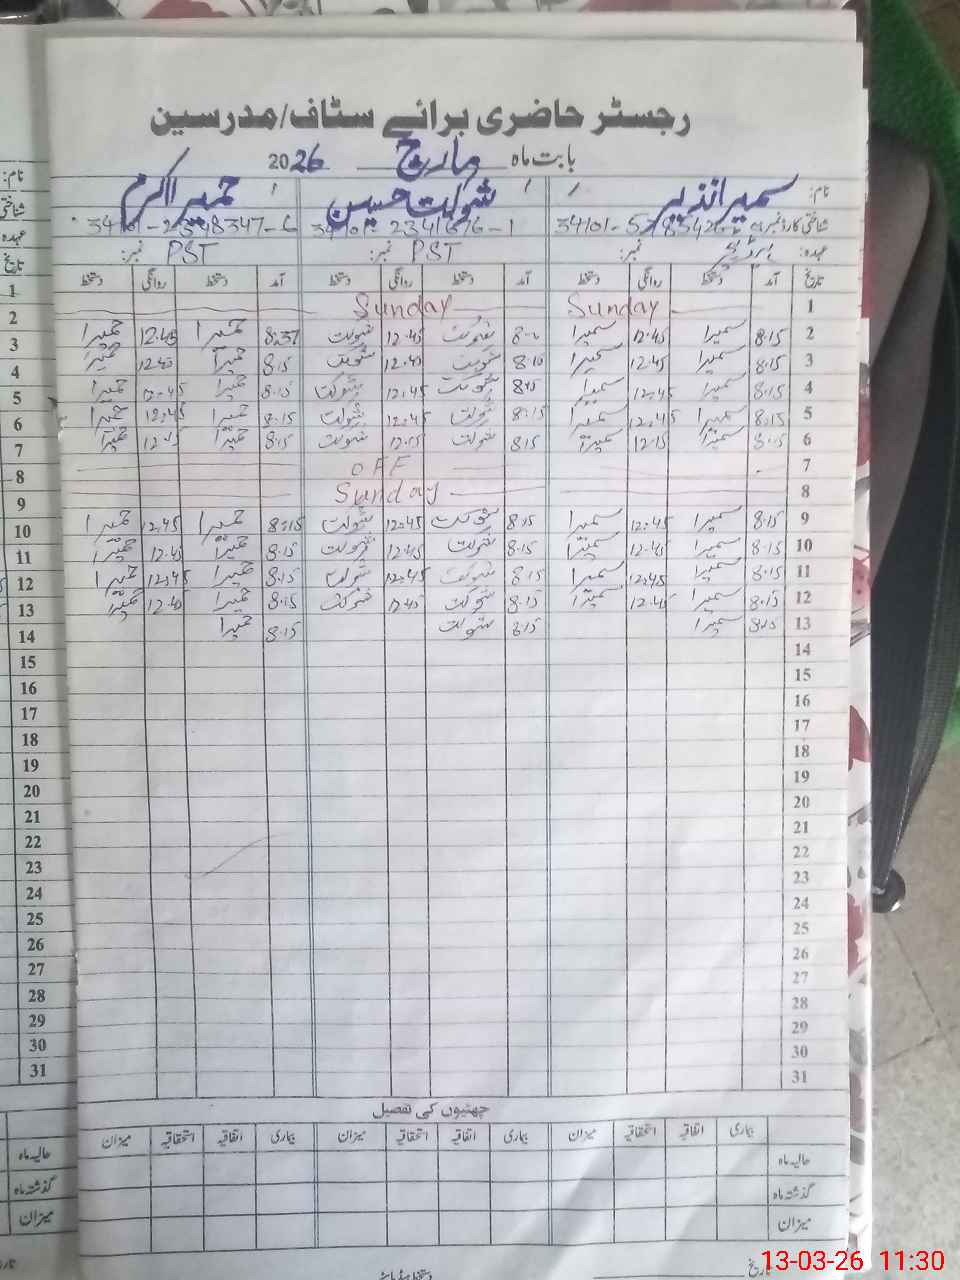 رجسٹر حاضری برائے سٹاف/مدرسین
بابت ماہ مارچ 2026
نام: سمیرا نذیر شوکت حسین حمیرا اکرم
شناختی کارڈ نمبر
عہدہ: نمبر: PST نمبر: PST
تاریخ آمد دستخط روانگی دستخط آمد دستخط روانگی دستخط آمد دستخط روانگی دستخط
1 Sunday Sunday
2 8.15 سمیرا 12.45 سمیرا شوکت 12.45 شوکت 8:37 حمیرا 12.45 حمیرا
3 8.15 سمیرا 12.45 سمیرا 8.10 شوکت 12.45 شوکت 8.15 حمیرا 12.45 حمیرا
4 8.15 سمیرا 12.45 سمیرا شوکت 12.45 شوکت 8.15 حمیرا 12.45 حمیرا
5 8:15 سمیرا 12.45 سمیرا 8:15 شوکت 12.45 شوکت 8.15 حمیرا 12.45 حمیرا
6 8.15 سمیرا 12.15 سمیرا 8.15 شوکت 12.15 شوکت 8.15 حمیرا 12.15 حمیرا
7 OFF
8 Sunday
9 8.15 سمیرا 12.45 سمیرا 8.15 شوکت 12:45 شوکت 8:15 حمیرا 12.45 حمیرا
10 8.15 سمیرا 12.45 سمیرا 8.15 شوکت 12.45 شوکت 8.15 حمیرا 12.45 حمیرا
11 8.15 سمیرا 12.45 سمیرا 8.15 شوکت 12.45 شوکت 8.15 حمیرا 12.45 حمیرا
12 8.15 سمیرا 12.45 سمیرا 8.15 شوکت 12.45 شوکت 8.15 حمیرا 12.45 حمیرا
13 8.15 سمیرا 8.15 شوکت 8.15 حمیرا
14
15
16
17
18
19
20
21
22
23
24
25
26
27
28
29
30
31
چھٹیوں کی تفصیل
بیماری اتفاقیہ استحقاقیہ میزان بیماری اتفاقیہ استحقاقیہ میزان بیماری اتفاقیہ استحقاقیہ میزان
حالیہ ماہ
گذشتہ ماہ
میزان
تاریخ
نام:
شناختی
عہدہ
تاریخ
1
2
3
4
5
6
7
8
9
10
11
12
13
14
15
16
17
18
19
20
21
22
23
24
25
26
27
28
29
30
31
حالیہ ماہ
گذشتہ ماہ
میزان
13-03-26 11:30